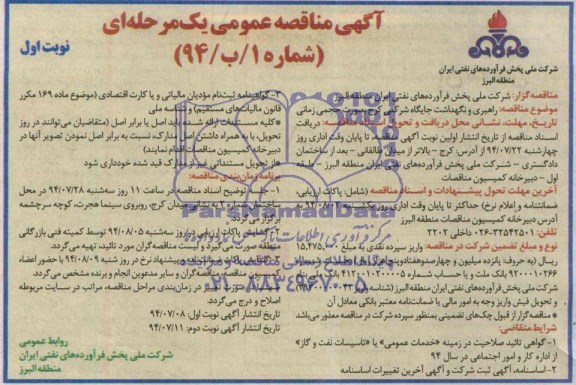 آگهی مناقصه عمومی یک‌مرحله‌ای
(شماره ۱/ب/۹۴)
نوبت اول
شرکت ملی پخش فرآورده‌های نفتی ایران
منطقه البرز
مناقصه‌گزار: شرکت ملی پخش فرآورده‌های نفتی ایران منطقه البرز
موضوع مناقصه: راهبری و نگهداشت جایگاه شرکتی کرج بصورت حجمی زمانی
تاریخ، مهلت، نشانی محل دریافت و تحویل اسناد مناقصه: دریافت
اسناد مناقصه از تاریخ انتشار اولین نوبت آگهی مناقصه تا پایان وقت اداری روز
چهارشنبه ۹۴/۰۷/۲۲ از آدرس: کرج – بالاتر از میدان طالقانی – بعد از ساختمان
دادگستری – شرکت ملی پخش فرآورده‌های نفتی ایران منطقه البرز – طبقه
اول – دبیرخانه کمیسیون مناقصات
آخرین مهلت تحویل پیشنهادات و اسناد مناقصه (شامل: پاکات ارزیابی،
ضمانتنامه و اعلام نرخ) حداکثر تا پایان وقت اداری روز یکشنبه ۹۴/۰۸/۰۳ به
آدرس دبیرخانه کمیسیون مناقصات منطقه البرز
تلفن: ۳۲۵۴۲۵۰۱-۰۲۶ داخلی ۲۲۰۲
نوع و مبلغ تضمین شرکت در مناقصه: واریز سپرده نقدی به مبلغ
ریال (به حروف: پانزده میلیون و چهارصدوهفتادوپنج
۹۲۰۰۰۱۰۲۶۶ بانک ملت و یا حساب شماره
شرکت ملی پخش فرآورده‌های نفتی ایران منطقه البرز (شناسه واریز
و تحویل فیش واریز وجه به امور مالی یا ضمانت‌نامه معتبر بانکی معادل آن
* مناقصه‌گزار از قبول چک‌های تضمینی بمنظور سپرده شرکت در مناقصه معذور می‌باشد
شرایط متقاضی:
۱- گواهی تائید صلاحیت در زمینه «خدمات عمومی» یا «تاسیسات نفت و گاز»
از اداره کار و امور اجتماعی در سال ۹۴
۲- اساسنامه، آگهی ثبت شرکت و آگهی آخرین تغییرات اساسنامه
۳- گواهینامه ثبت‌نام مؤدیان مالیاتی و یا کارت اقتصادی (موضوع ماده ۱۶۹ مکرر
قانون مالیات‌های مستقیم) و شناسه ملی
* کلیه مستندات ارائه شده باید اصل یا برابر اصل (متقاضیان می‌توانند در روز
تحویل، با به همراه داشتن اصل مدارک، نسبت به برابر اصل نمودن تصویر آنها در
دبیرخانه کمیسیون مناقصات اقدام نمایند)
* از تحویل مستنداتی غیر از مدارک قید شده خودداری شود
برنامه زمان‌بندی مناقصه:
۱- جلسه توضیح اسناد مناقصه در ساعت ۱۱ روز سه‌شنبه ۹۴/۰۷/۲۸ در محل
به نشانی میدان کرج، روبروی سینما هجرت، کوچه سرچشمه
برگزار می‌گردد
پاکات ارزیابی در روز سه‌شنبه ۹۴/۰۸/۰۵ توسط کمیته فنی بازرگانی
منطقه صورت می‌گیرد و لیست مناقصه‌گران مورد تائید، تهیه می‌گردد.
پیشنهاد نرخ در روز شنبه ۹۴/۰۸/۰۹ با حضور اعضاء
کمیسیون مناقصات، مناقصه‌گران و سایر مدعوین انجام و برنده مشخص می‌گردد.
تغییر در زمان‌بندی مراحل مناقصه، مراتب در سایت مربوطه
اصلاح و درج می‌گردد.
تاریخ انتشار آگهی نوبت اول: ۹۴/۰۷/۰۸
تاریخ انتشار آگهی نوبت دوم: ۹۴/۰۷/۱۱
روابط عمومی
شرکت ملی پخش فرآورده‌های نفتی ایران
منطقه البرز
ParsNamadData
۰۲۱-۸۸۳۴۹۶۷۰-۵